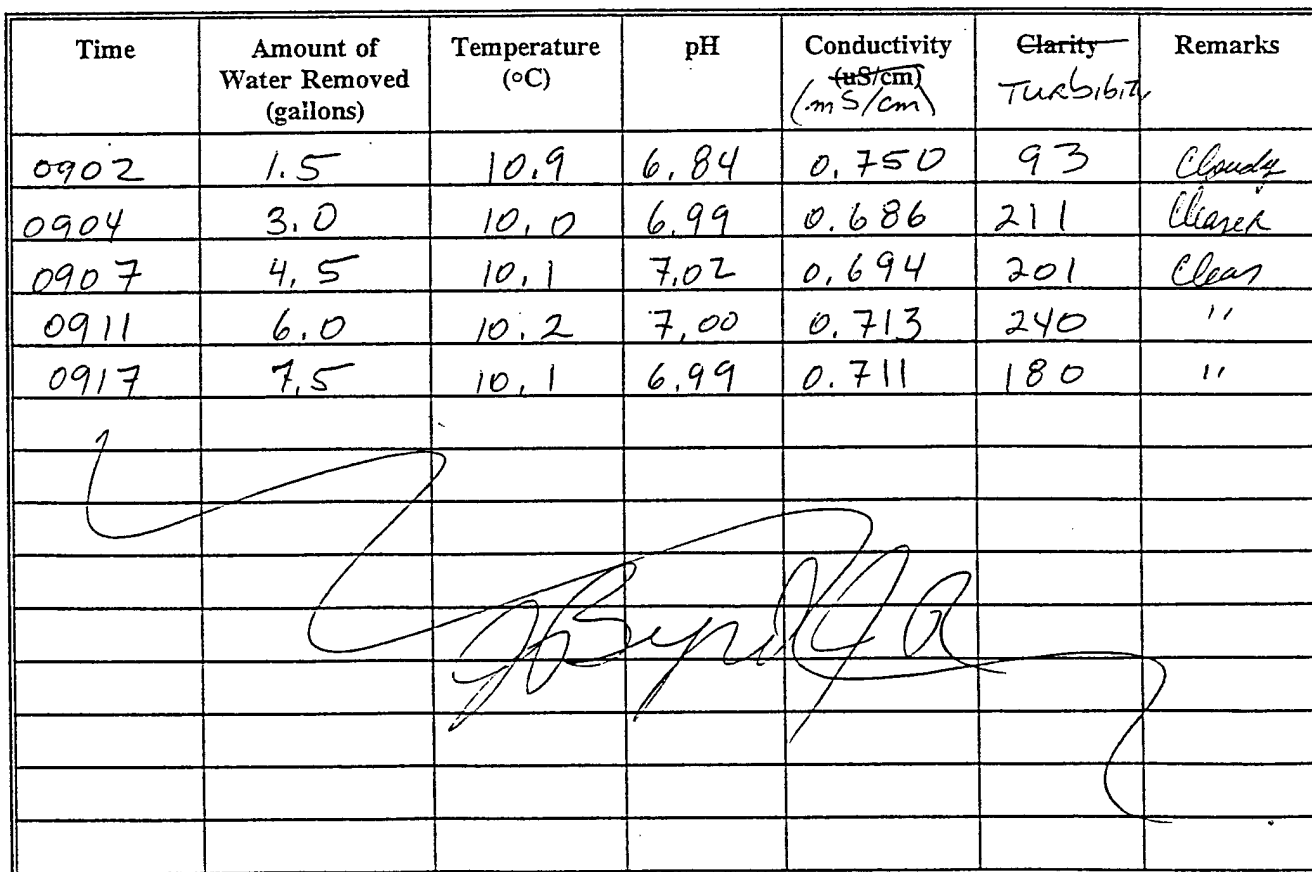 Time Amount of Water Removed (gallons) Temperature (°C) pH Conductivity (uS/cm) (mS/cm) Clarity TURbibiTy Remarks
0902 1.5 10.9 6.84 0.750 93 Cloudy
0904 3.0 10.0 6.99 0.686 211 Clearer
0907 4.5 10.1 7.02 0.694 201 Clear
0911 6.0 10.2 7.00 0.713 240 "
0917 7.5 10.1 6.99 0.711 180 "